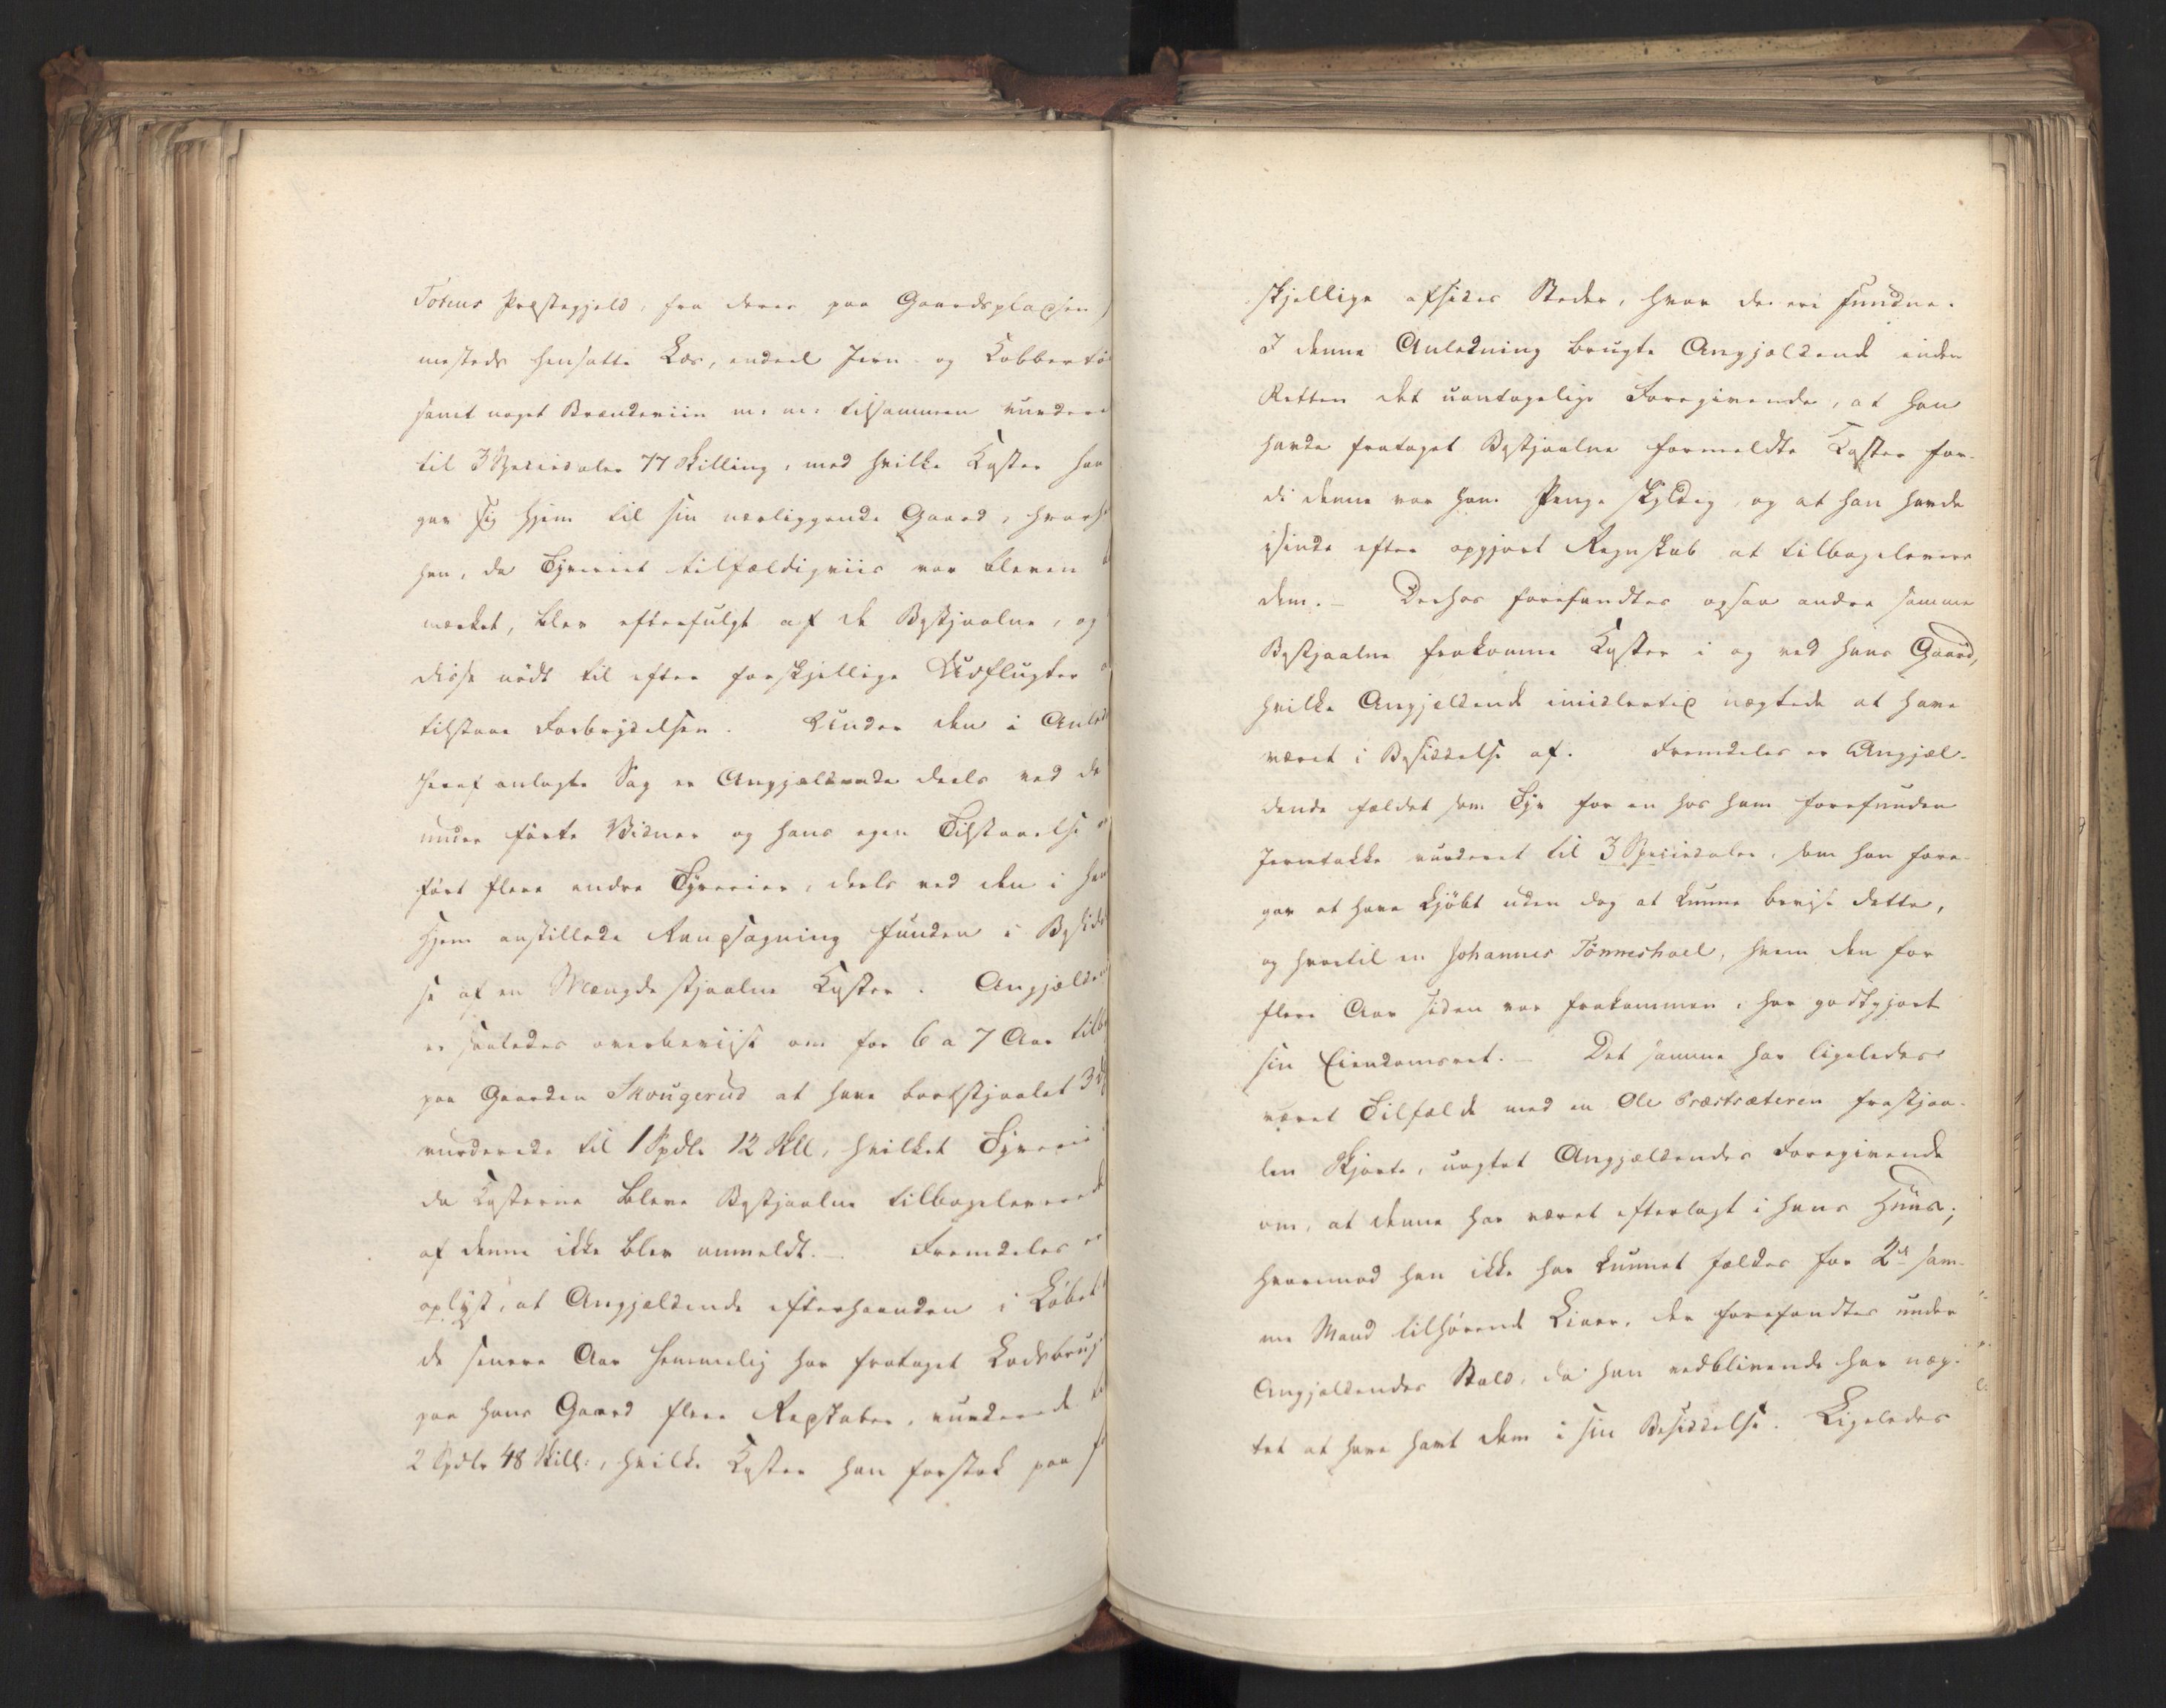 Totens Præstegjeld, fra deres paa Gaardspladsen
mesteds hensatte Læs, endeel Jern- og Kobbertø
samt noget Brændeviin m. m. tilsammen vurdere
til 3 Speciedaler 77 Skilling, med hvilke Koster han
gav sig hjem til sin nærliggende Gaard, hvorhe
han, da Tyveriet tilfældigviis var bleven
mærket, blev efterfulgt af de Bestjaalne, og
disse nødt til efter forskjellige Udflugter
tilstaae Forbrydelsen. Under den i Anled
heraf anlagte Sag er Angjældende deels ved de
under førte Vidner og hans egen Tilstaaelse
ført flere andre Tyverier, deels ved den i han
Hjem anstillede Randsagning funden i Besid
se af en Mængde stjaalne Koster. Angjælden
er saaledes overbeviist om for 6 a 7 Aar tilb
paa Gaarden Skougerud at have bortstjaalet 3
vurderede til 1 Spdlr 12 Skll, hvilket Tyveri
da Kosterne bleve Bestjaalne tilbageleverede
af denne ikke blev anmeldt. – Fremdeles er
oplyst, at Angjældende efterhaanden i Løbet
de senere Aar hemmelig har frataget Landbrug
paa hans Gaard flere Redskaber, vurderede
2 Spdlr 48 Skill:, hvilke Koster han forstak paa f
skjellige afsides Steder, hvor de ere fundne.
I denne Anledning brugte Angjældende inden
Retten det uantagelige Foregivende, at han
havde frataget Bestjaalne formeldte Koster for-
di denne var ham Penge skyldig, og at han havde
isinde efter opgjort Regnskab at tilbagelevere
dem. – Derhos forefandtes ogsaa andre samme
Bestjaalne frakomne Koster i og ved hans Gaard,
hvilke Angjældende imidlertid nægtede at have
været i Besiddelse af. Fremdeles er Angjæl-
dende fældet som Tyv for en hos ham forefunden
Jerntakke vurderet til 3 Speciedaler, som han fore-
gav at have kjøbt uden dog at kunne bevise dette,
og hvortil en Johannes Tømmerhoel, hvem den for
flere Aar siden var frakommen, har godtgjort
sin Eiendomsret. – Det samme har ligeledes
været Tilfældet med en Ole Præstsæteren frastjaa-
len Skjorte, uagtet Angjældendes Foregivende
om, at denne har været efterlagt i hans Huus;
hvorimod han ikke har kunnet fældes for 2de sam-
me Mand tilhørende Liner, der forefandtes under
Angjældendes Stald, da han vedblivende har næg-
tet at have havt dem i sin Besiddelse. Ligeledes